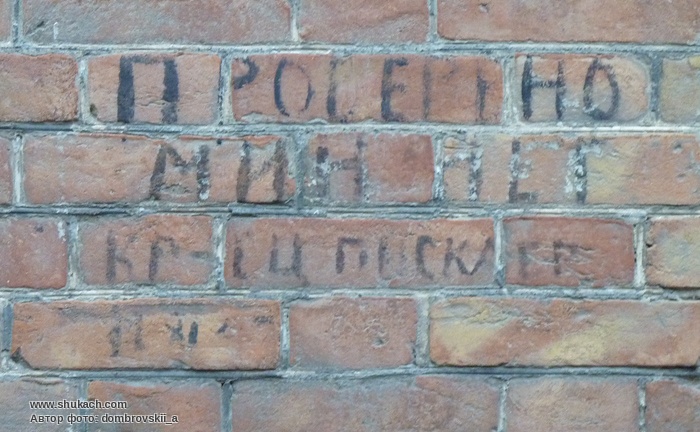 ПРОВЕРЕНО
МИН НЕТ
КР-ЕЦ ПИСКЛОВ
www.shukach.com
Автор фото: dombrovskii_a